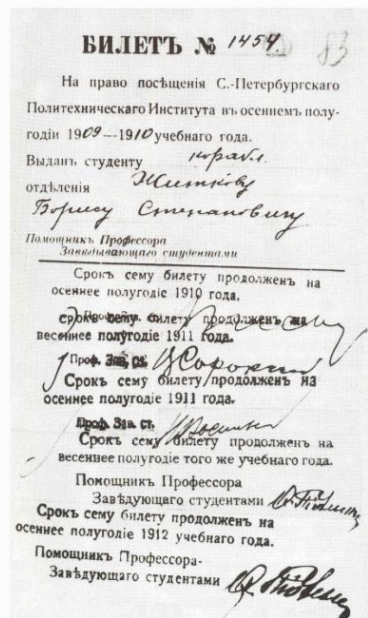 БИЛЕТЪ № 1454
83
На право посѣщенія С.-Петербургскаго
Политехническаго Института въ осеннемъ полу-
годіи 1909—1910 учебнаго года.
Выданъ студенту корабл.
отдѣленія Житкову
Борису Степановичу
Помощникъ Профессора
Завѣдывающаго студентами
Срокъ сему билету продолжен на
осеннее полугодіе 1910 года.
срокъ сему билету продолжен на
весеннее полугодіе 1911 года.
Проф. Зав. ст.
Срокъ сему билету продолжен на
осеннее полугодіе 1911 года.
Проф. Зав. ст.
Срокъ сему билету продолжен на
весеннее полугодіе того же учебнаго года.
Помощникъ Профессора
Завѣдующаго студентами
Срокъ сему билету продолжен на
осеннее полугодіе 1912 учебнаго года.
Помощникъ Профессора-
Завѣдующаго студентами